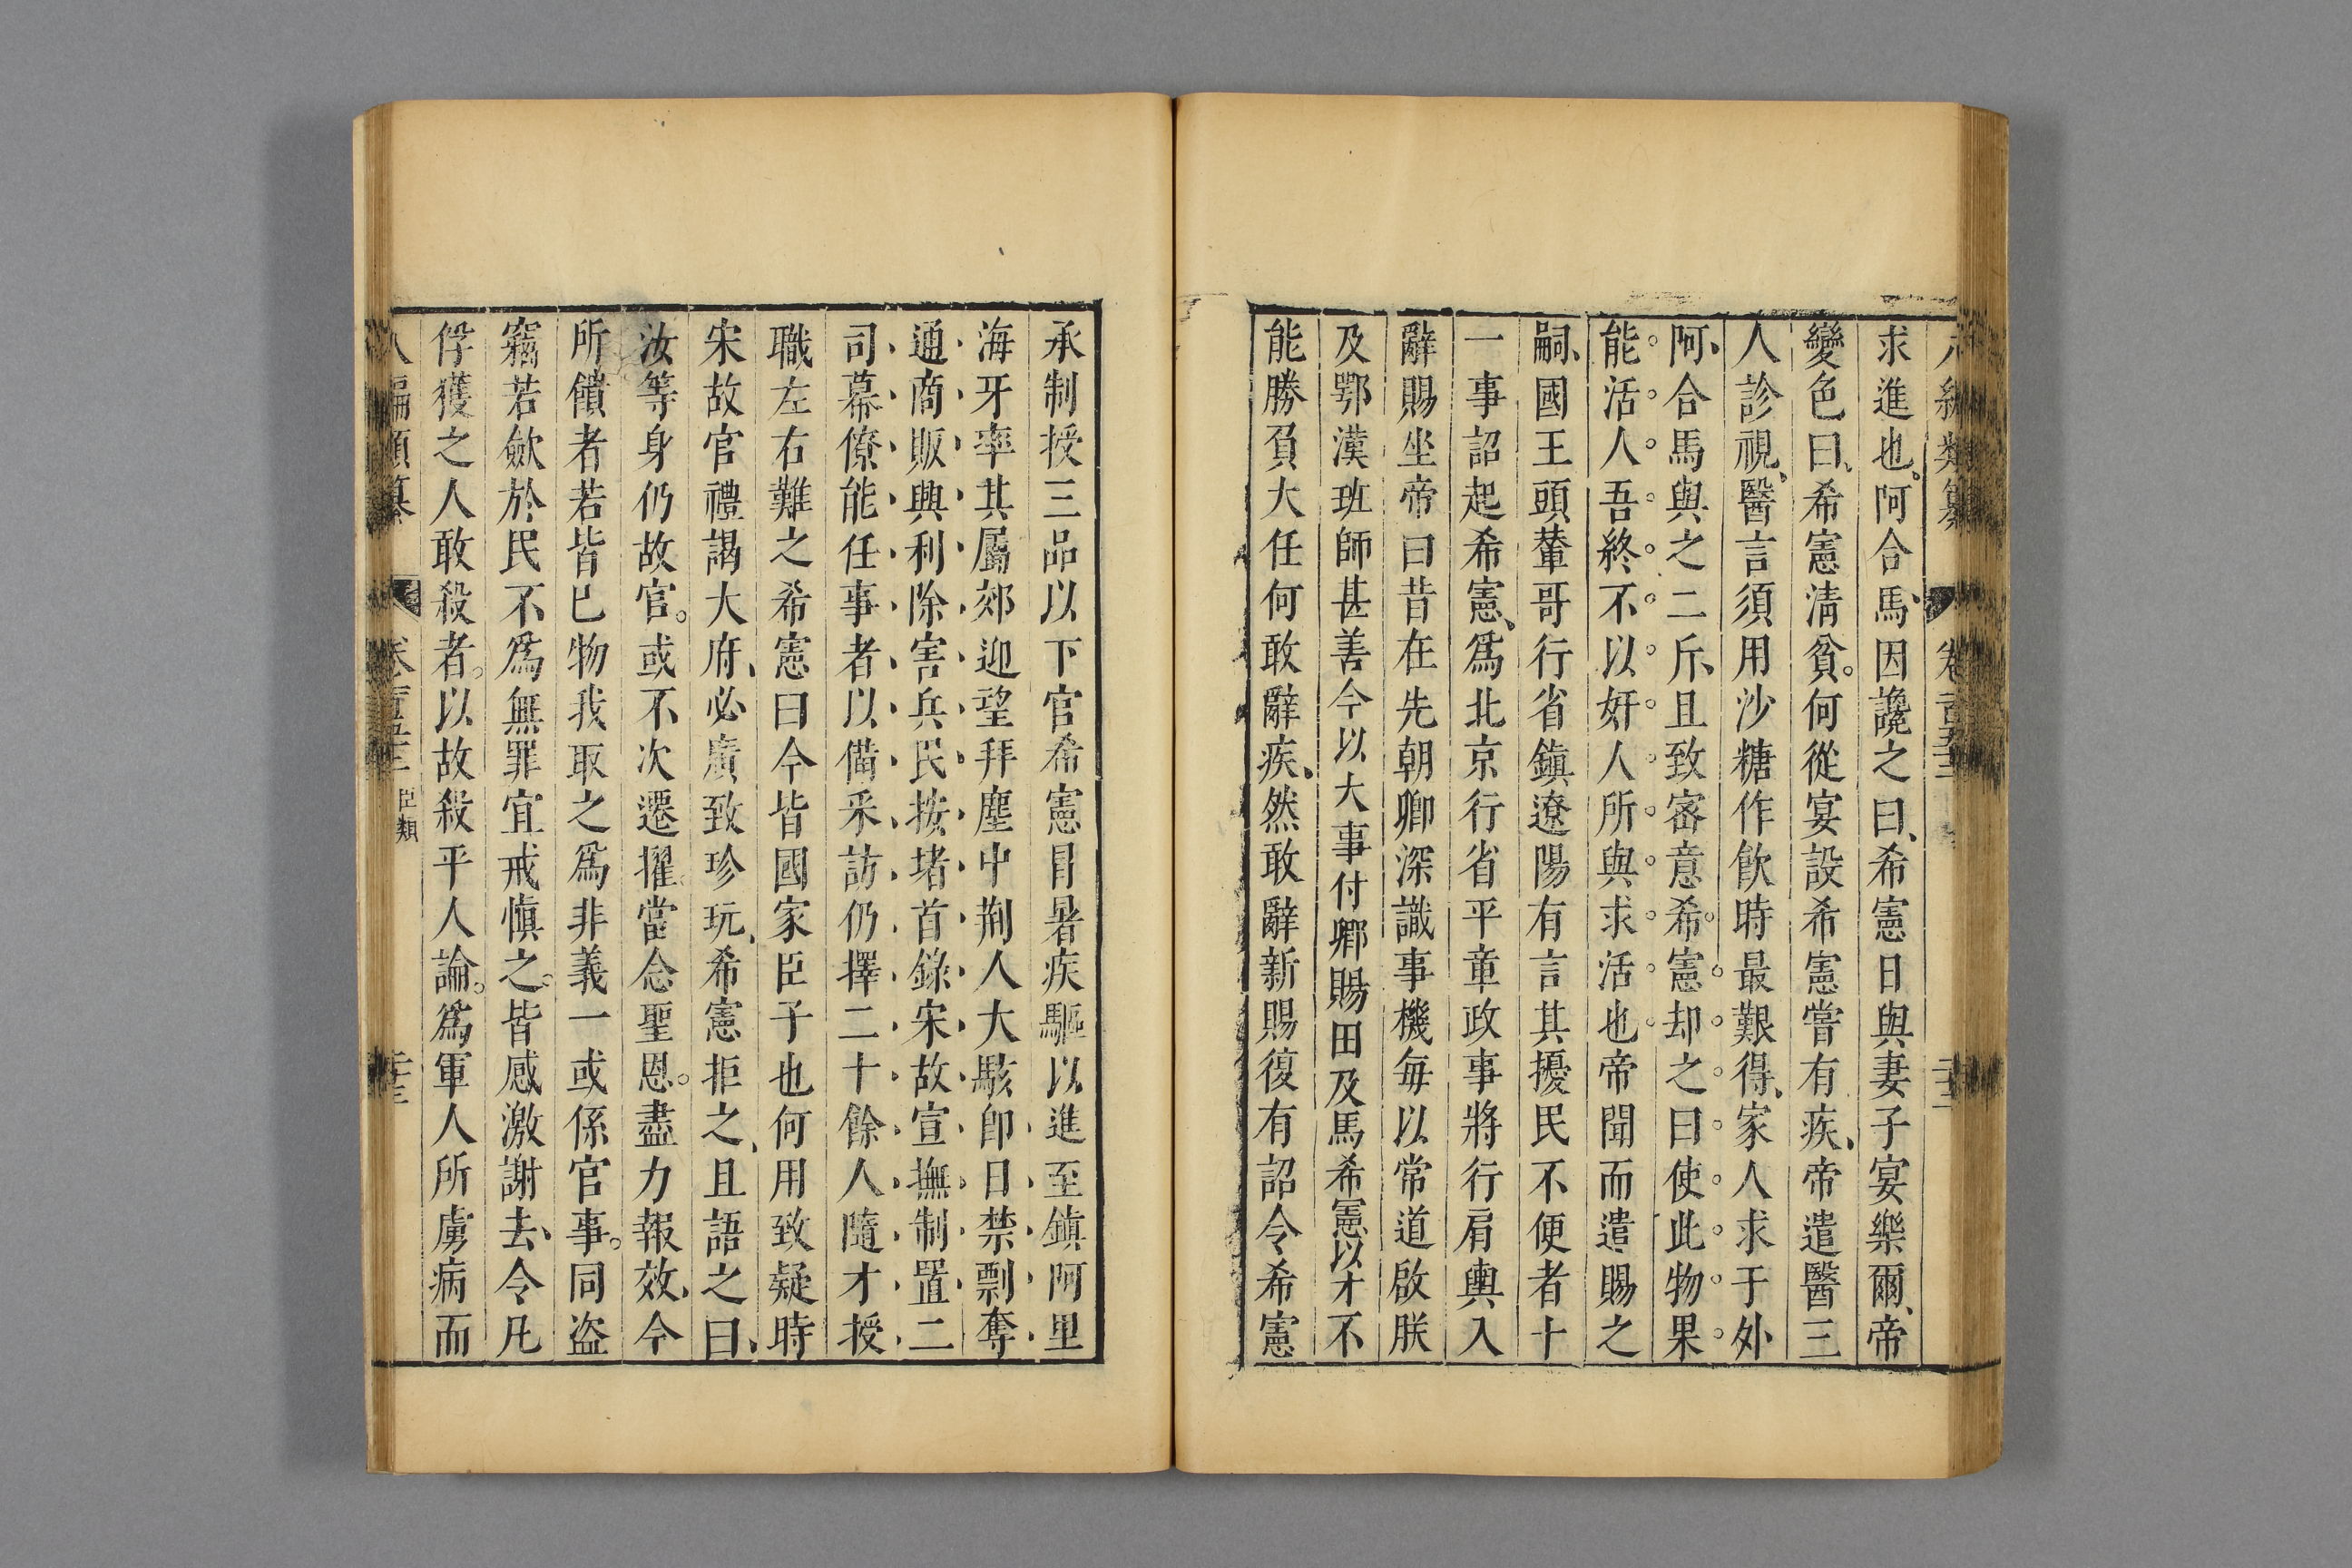 八編類纂 卷一百五十三 二十二
求進也阿合馬因讒之曰希憲日與妻子宴樂爾帝
變色曰希憲清貧何從宴設希憲嘗有疾帝遣醫三
人診視醫言須用沙糖作飲時最艱得家人求于外
阿合馬與之二斤且致密意希憲却之曰使此物果
能活人吾終不以奸人所與求活也帝聞而遣賜之
嗣國王頭輦哥行省鎮遼陽有言其擾民不便者十
一事詔起希憲爲北京行省平章政事將行肩輿入
辭賜坐帝曰昔在先朝卿深識事機每以常道啟朕
及鄂漢班師甚善今以大事付卿賜田及馬希憲以才不
能勝負大任何敢辭疾然敢辭新賜復有詔令希憲
承制授三品以下官希憲冒暑疾驅以進至鎮阿里
海牙率其屬郊迎望拜塵中荆人大駭即日禁剽奪
通商販興利除害兵民按堵首錄宋故宣撫制置二
司幕僚能任事者以備采訪仍擇二十餘人隨才授
職左右難之希憲曰今皆國家臣子也何用致疑時
宋故官禮謁大府必廣致珍玩希憲拒之且語之曰
汝等身仍故官或不次遷擢當念聖恩盡力報效今
所饋者若皆已物我取之爲非義一或係官事同盜
竊若斂於民不爲無罪宜戒慎之皆感激謝去令凡
俘獲之人敢殺者以故殺平人論爲軍人所虜病而
八編類纂 卷一百五十三 臣類 二十三